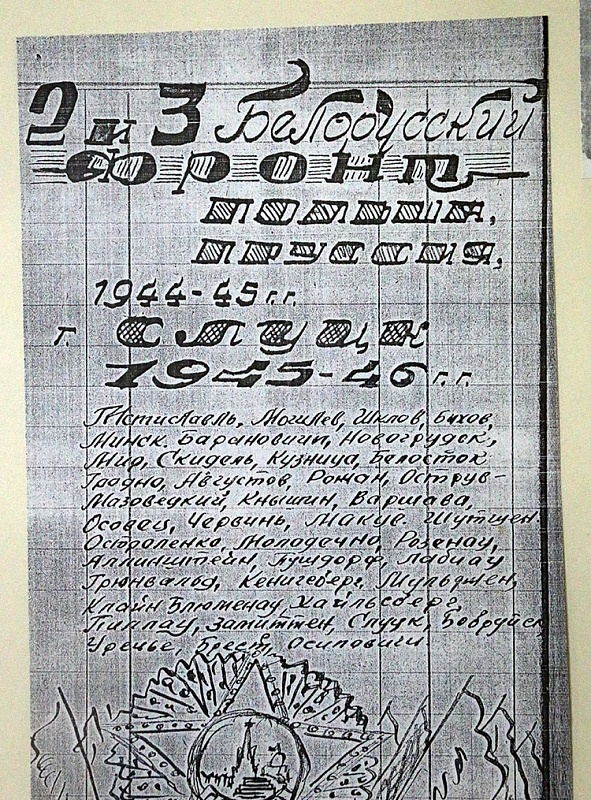 2 и 3 Белорусский
фронт
ПОЛЬША,
ПРУССИЯ,
1944-45 г.г.
г. СЛУЦК
1945-46 г.г.
Мстиславль, Могилев, Шклов, Быхов,
Минск. Барановичи, Новогрудск,
Мир, Скидель, Кузница, Белосток
Гродно, Августов, Рожан, Острув-
Мазовецкий, Кнышин, Варшава,
Осовец, Червинь, Макув. Шутщен
Остроленко, Молодечно, Розенау,
Аллинштейн, Пушдорф, Лабиау
Грюнвальд, Кенигсберг, Мульджен,
Клайн Блюменау, Хайльсберг
Пиллау, Замиттен, Слуцк, Бобруйск
Уречье, Брест, Осиповичи.